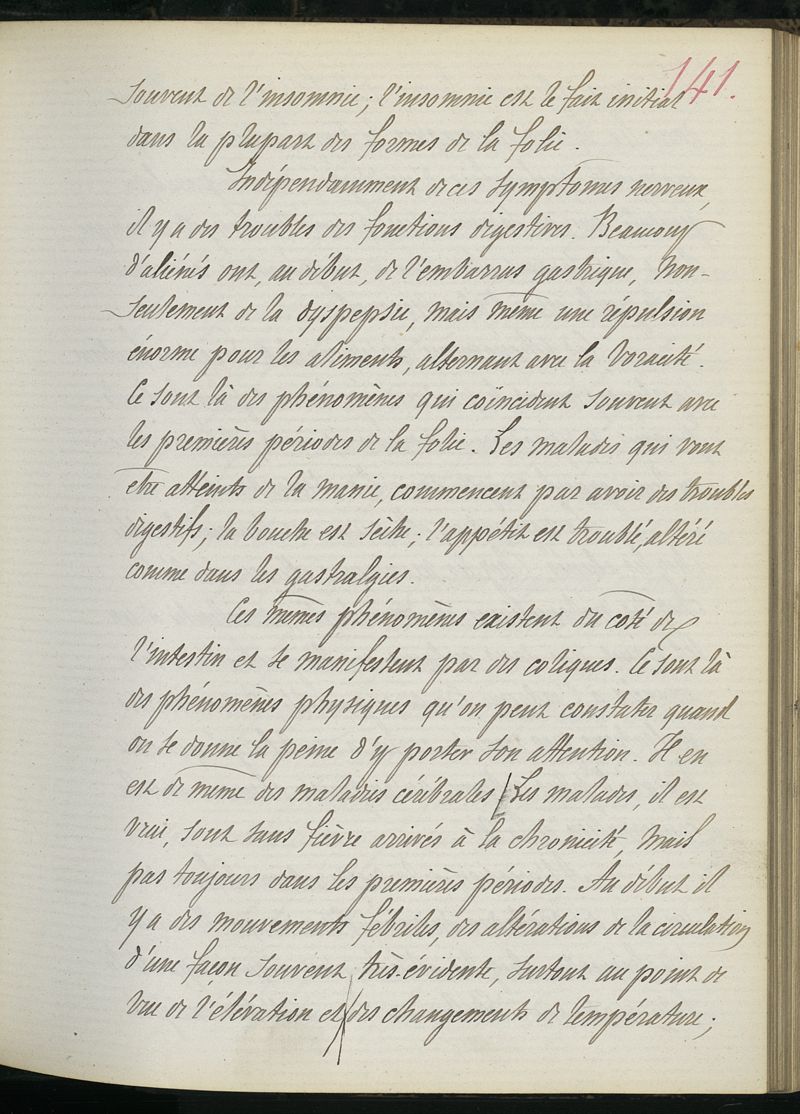 141.
souvent de l'insomnie ; l'insomnie est le fait initial
dans la plupart des formes de la folie .
Indépendamment de ces symptômes nerveux,
il y a des troubles des fonctions digestives. Beaucoup
d'aliénés ont, au début, de l'embarras gastrique, non-
seulement de la dyspepsie, mais même une répulsion
énorme pour les aliments, alternant avec la voracité.
Ce sont là des phénomènes qui coïncident souvent avec
les premières périodes de la folie. Les malades qui vont
être atteints de la manie, commencent par avoir des troubles
digestifs ; la bouche est sèche ; l'appétit est troublé, altéré
comme dans les gastralgies.
Ces mêmes phénomènes existent du côté de
l'intestin et se manifestent par des coliques. Ce sont là
des phénomènes physiques qu'on peut constater quand
on se donne la peine d'y porter son attention. Il en
est de même des maladies cérébrales / Les malades, il est
vrai, sont sans fièvre arrivés à la chronicité, mais
pas toujours dans les premières périodes. Au début il
y a des mouvements fébriles, des altérations de la circulation
d'une façon souvent très-évidente, surtout au point de
vue de l'élévation et / des changements de température ;